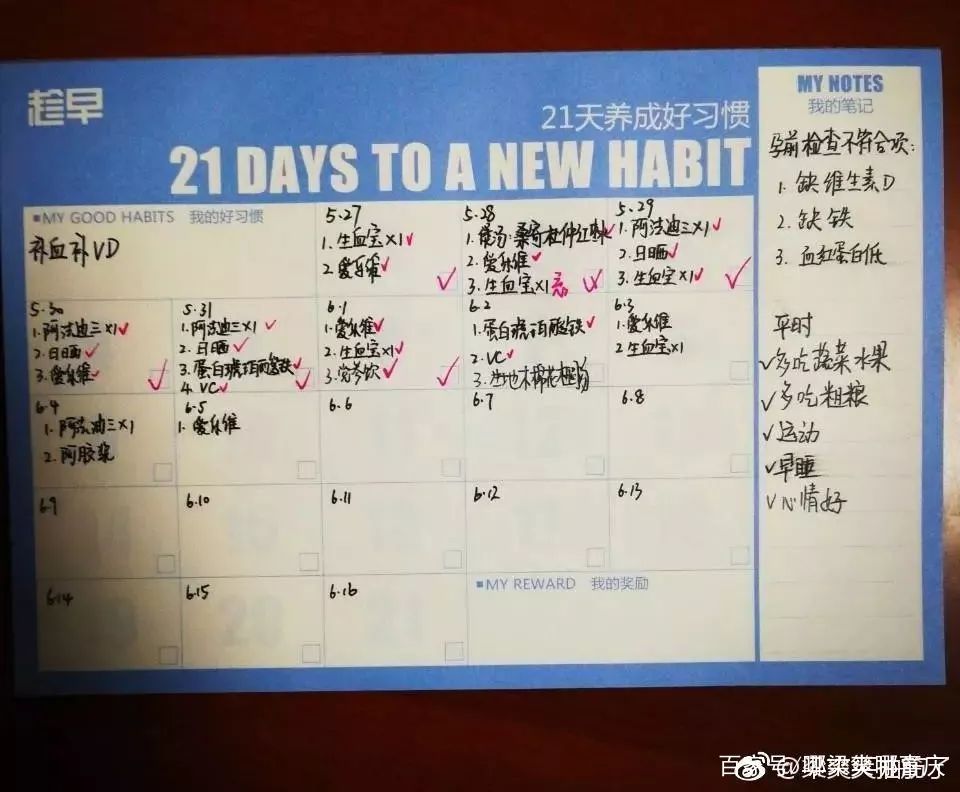 趁早
21天养成好习惯
21 DAYS TO A NEW HABIT
MY GOOD HABITS 我的好习惯
补血补VD
5.27
1.生血宝×1✓
2.爱乐维✓
5.28
1.煲汤:桑寄杜仲红枣
2.爱乐维✓
3.生血宝×1
5.29
1.阿法迪三×1✓
2.日晒✓
3.生血宝×1✓
5.30
1.阿法迪三×1✓
2.日晒✓
3.爱乐维✓
5.31
1.阿法迪三×1✓
2.日晒✓
3.蛋白琥珀酸铁✓
4.VC✓
6.1
1.爱乐维✓
2.生血宝×1✓
3.党参饮✓
6.2
1.蛋白琥珀酸铁✓
2.VC✓
3.
6.3
1.爱乐维
2.生血宝×1
6.4
1.阿法迪三×1
2.阿胶浆
6.5
1.爱乐维
6.6
6.7
6.8
6.9
6.10
6.11
6.12
6.13
6.14
6.15
6.16
MY REWARD 我的奖励
MY NOTES
我的笔记
孕前检查不符合项:
1.缺维生素D
2.缺铁
3.血红蛋白低
平时
✓多吃蔬菜水果
✓多吃粗粮
✓运动
✓早睡
✓心情好
百家号